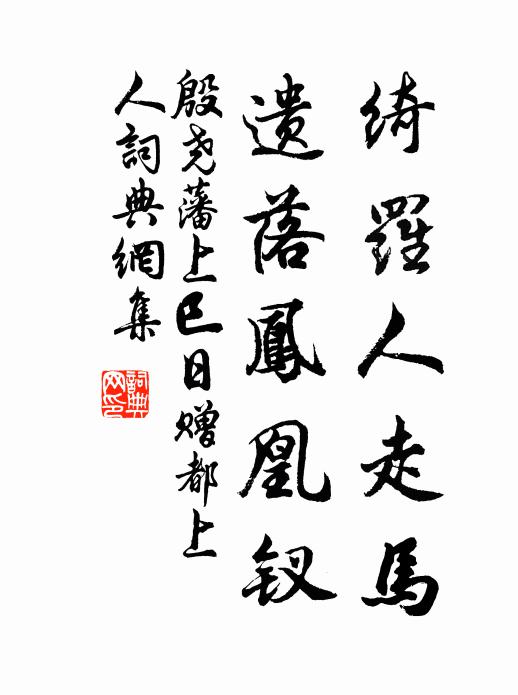 綺羅人走馬
遺落鳳凰钗
殷尧藩上巳日贈都上
人詞典網集
詞典网印